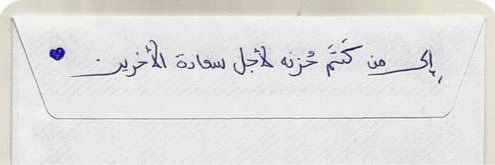 إلى من كَتَمَ حُزنه لأجل سعادة الأخرين